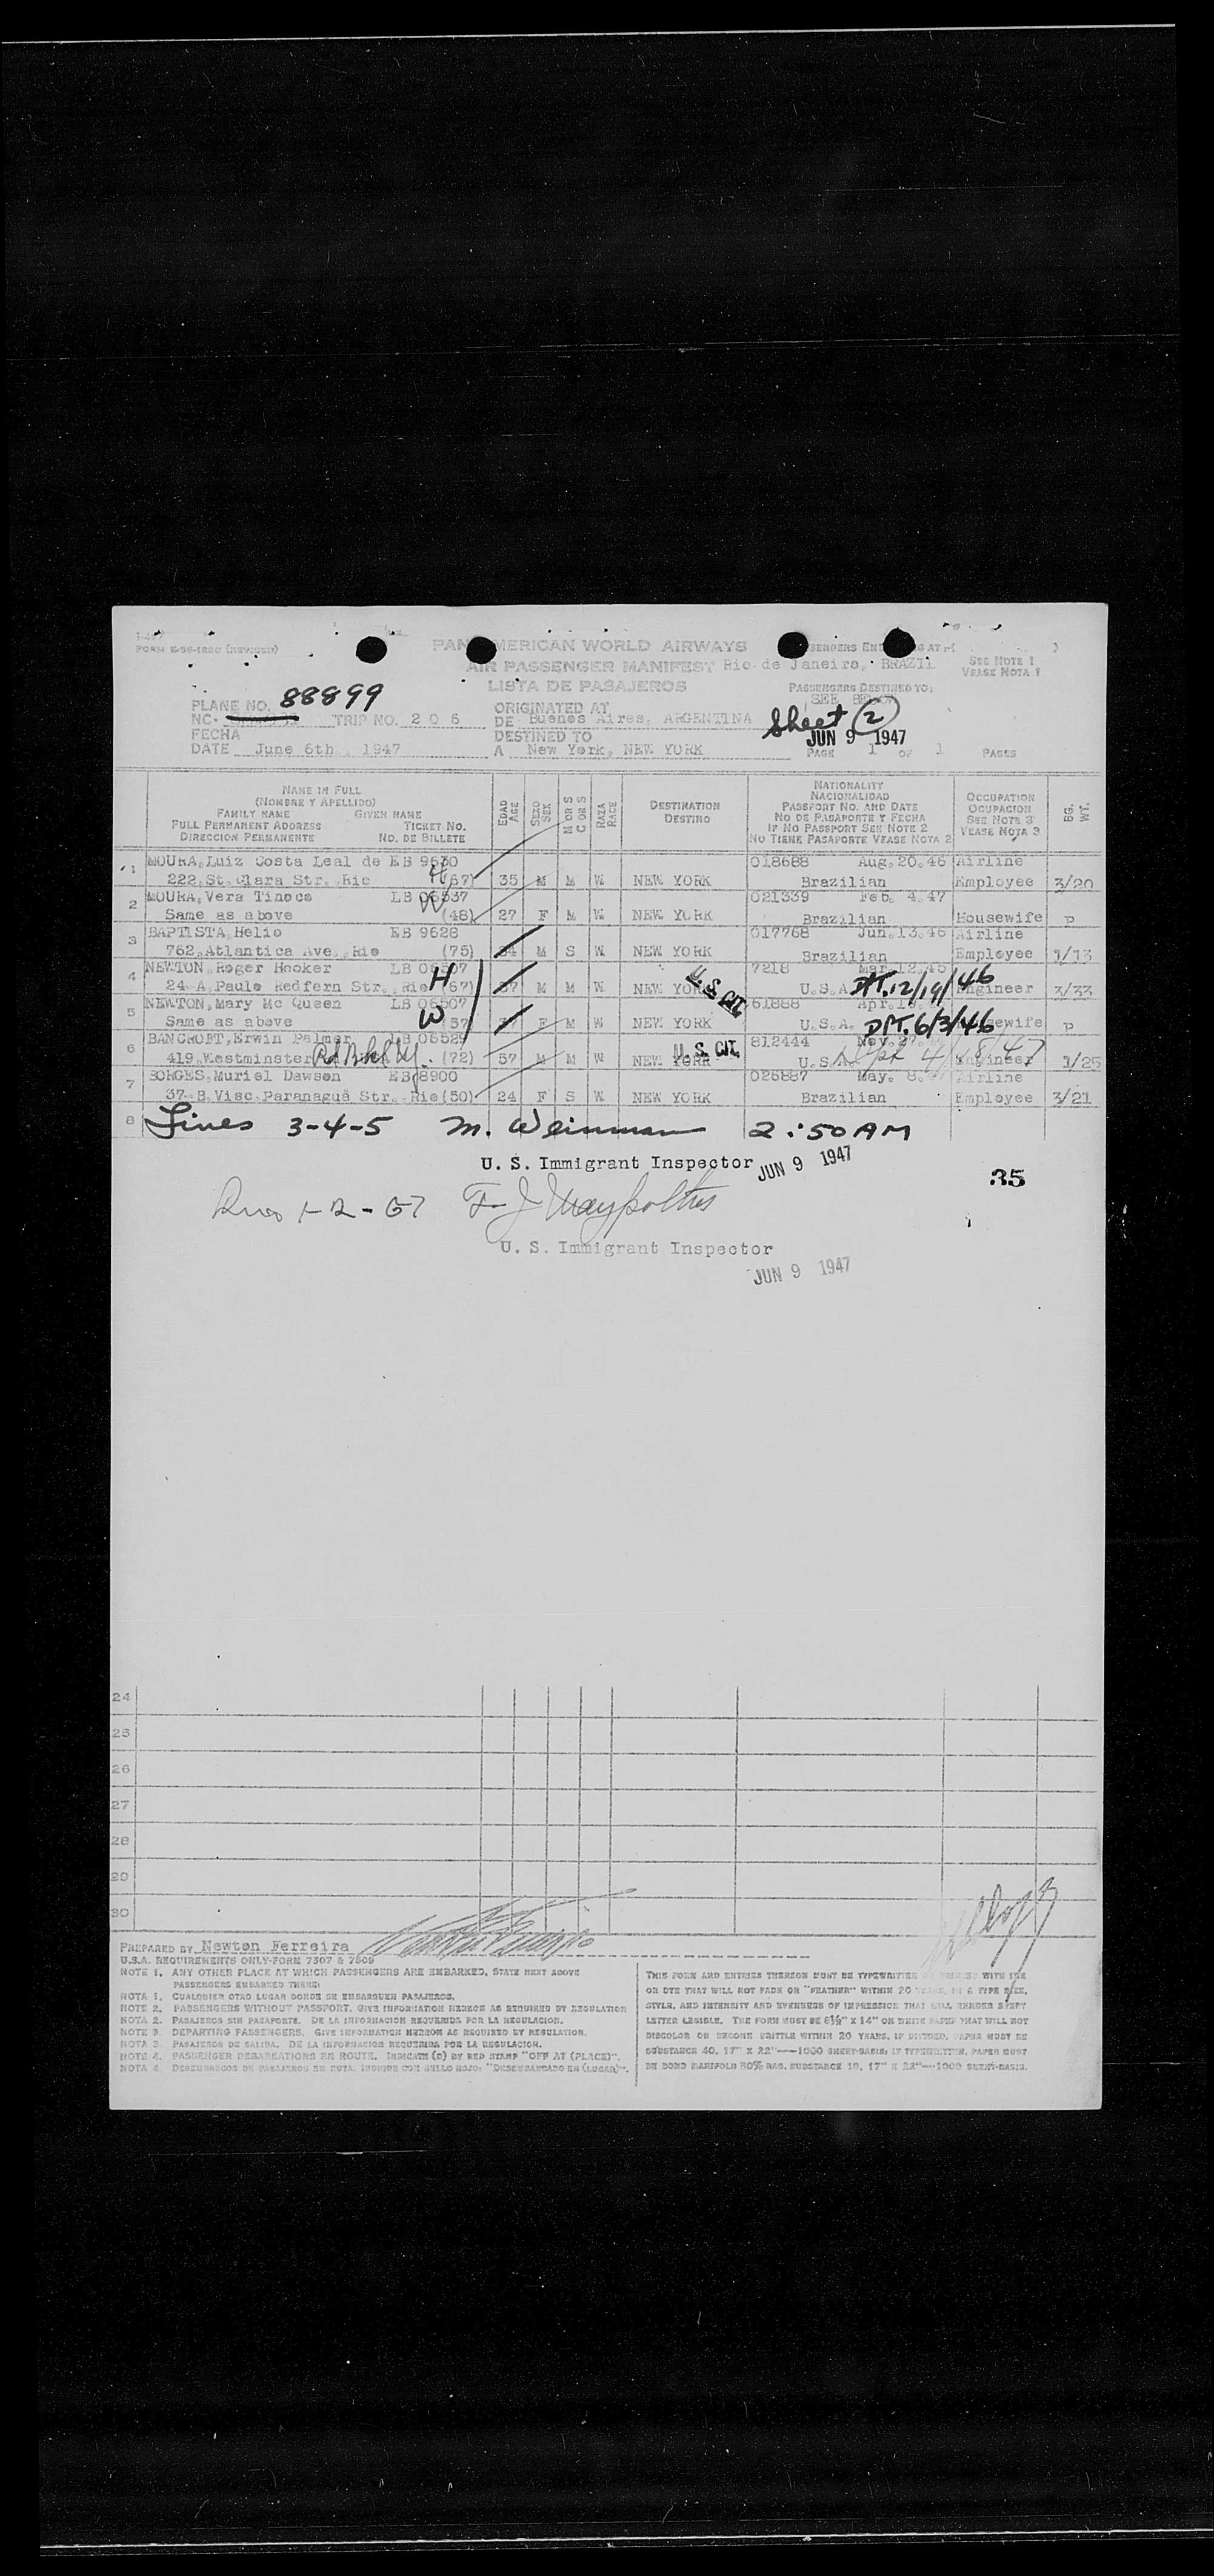 FORM E-36-1280 (REVISED)
PAN AMERICAN WORLD AIRWAYS
AIR PASSENGER MANIFEST Rio de Janeiro, BRAZIL
SEE NOTE 1
VEASE NOTA 1
LISTA DE PASAJEROS
PASSENGERS DESTINED TO:
SEE BELOW
PLANE NO. 88899
NC- TRIP NO. 2 0 6
ORIGINATED AT
DE Buenos Aires, ARGENTINA
Sheet (2)
JUN 9 1947
FECHA
DATE June 6th, 1947
DESTINED TO
A New York, NEW YORK
PAGE 1 OF 1 PAGES
NAME IN FULL
(NOMBRE Y APELLIDO)
FAMILY NAME GIVEN NAME
FULL PERMANENT ADDRESS TICKET NO.
DIRECCION PERMANENTE NO. DE BILLETE
EDAD AGE
SEXO SEX
M OR S C OR S
RAZA RACE
DESTINATION
DESTINO
NATIONALITY
NACIONALIDAD
PASSPORT NO. AND DATE
NO DE PASAPORTE Y FECHA
IF NO PASSPORT SEE NOTE 2
NO TIENE PASAPORTE VEASE NOTA 2
OCCUPATION
OCUPACION
SEE NOTE 3
VEASE NOTA 3
BG. WT.
1 MOURA, Luiz Costa Leal de EB 9630 018688 Aug. 20. 46 Airline
222, St. Clara Str., Rio H (67) 35 M M W NEW YORK Brazilian Employee 3/20
2 MOURA, Vera Tinoco LB 06537 021339 Feb. 4. 47
Same as above W (48) 27 F M W NEW YORK Brazilian Housewife p
3 BAPTISTA, Helio EB 9628 017768 Jun. 13. 46 Airline
762, Atlantica Ave., Rio (75) 34 M S W NEW YORK Brazilian Employee 1/13
4 NEWTON, Roger Hooker LB 06507 7218 Mar. 12. 45
24 A. Paulo Redfern Str., Rio H (67) 37 M M W NEW YORK U.S. CIT. U.S.A. DPT. 12/19/46 Engineer 3/33
5 NEWTON, Mary Mc Queen LB 06507 61888 Apr.
Same as above W (57) F M W NEW YORK U.S.A. DPT. 6/3/46 Housewife p
6 BANCROFT, Erwin Palmer LB 06529 812444 Nov. 27
419, Westminster Rd (72) 57 M M W NEW YORK U.S. CIT. U.S.A. Dept 4/18/47 Engineer 1/25
7 BORGES, Muriel Dawson EB 8900 025887 May. 8. Airline
37 B, Visc. Paranaguá Str., Rio (50) 24 F S W NEW YORK Brazilian Employee 3/21
8 Lines 3-4-5 M. Weinman 2:50 AM
U. S. Immigrant Inspector JUN 9 1947
35
F. J.
U. S. Immigrant Inspector
JUN 9 1947
24
25
26
27
28
29
30
PREPARED BY Newton Ferreira
U.S.A. REQUIREMENTS ONLY-FORM 7507 & 7509
NOTE 1. ANY OTHER PLACE AT WHICH PASSENGERS ARE EMBARKED, STATE NEXT ABOVE
PASSENGERS EMBARKED THERE:
NOTA 1. CUALQUIER OTRO LUGAR DONDE SE EMBARQUEN PASAJEROS.
NOTE 2. PASSENGERS WITHOUT PASSPORT, GIVE INFORMATION HEREON AS REQUIRED BY REGULATION
NOTA 2. PASAJEROS SIN PASAPORTE. DE LA INFORMACION REQUERIDA POR LA REGULACION.
NOTE 3. DEPARTING PASSENGERS. GIVE INFORMATION HEREON AS REQUIRED BY REGULATION.
NOTA 3. PASAJEROS DE SALIDA. DE LA INFORMACION REQUERIDA POR LA REGULACION.
NOTE 4. PASSENGER DEBARKATIONS EN ROUTE. INDICATE (D) BY RED STAMP "OFF AT (PLACE)".
NOTA 4. DESEMBARCOS DE PASAJEROS EN RUTA. INDIQUE CON SELLO ROJO: "DESEMBARCADO EN (LUGAR)".
THIS FORM AND ENTRIES THEREON MUST BE TYPEWRITTEN OR PRINTED WITH INK
OR DYE THAT WILL NOT FADE OR "FEATHER" WITHIN 20 YEARS, IN A TYPE SIZE,
STYLE, AND INTENSITY AND EVENNESS OF IMPRESSION THAT WILL RENDER EVERY
LETTER LEGIBLE. THE FORM MUST BE 8½" X 14" ON WHITE PAPER THAT WILL NOT
DISCOLOR OR BECOME BRITTLE WITHIN 20 YEARS. IF DITTOED, PAPER MUST BE
SUBSTANCE 40, 17" X 22"—1000 SHEET-BASIS: IF TYPEWRITTEN, PAPER MUST
BE BOND MANIFOLD 50% RAG. SUBSTANCE 18, 17" X 22"—1000 SHEET-BASIS.